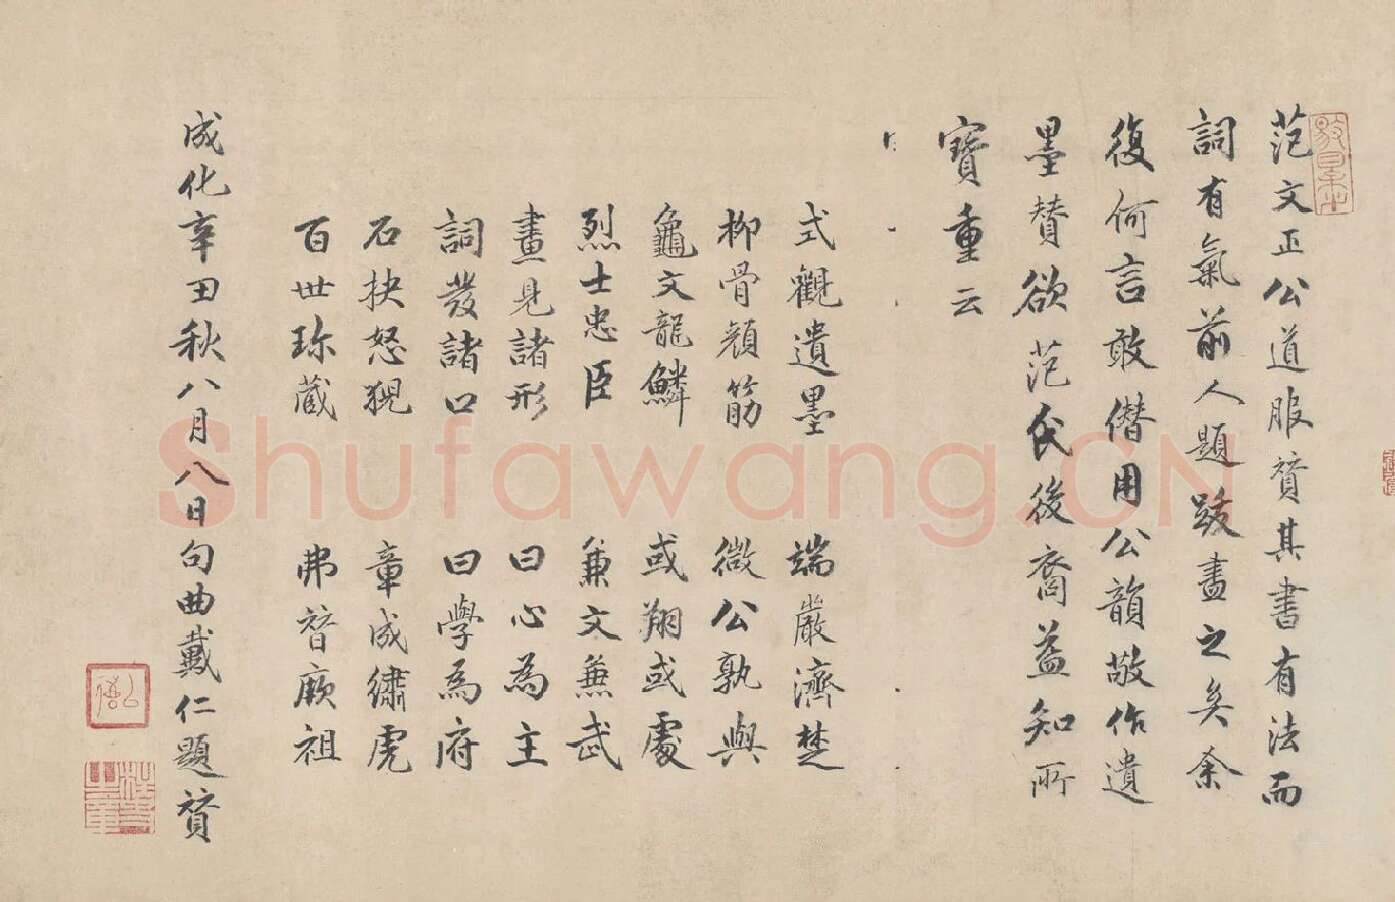 范文正公道服賛其書有法而
詞有氣前人題跋盡之矣余
復何言敢僣用公韻敬作遺
墨賛欲范氏後裔益知所
寶重云
式觀遺墨 端嚴濟楚
柳骨顔筋 微公孰與
龜文龍鱗 或翔或處
烈士忠臣 兼文兼武
畫見諸形 曰心為主
詞發諸口 曰學為府
石抉怒猊 章成繡虎
百世珎藏 弗替厥祖
成化辛丑秋八月八日句曲戴仁題賛
Shufawang.CN